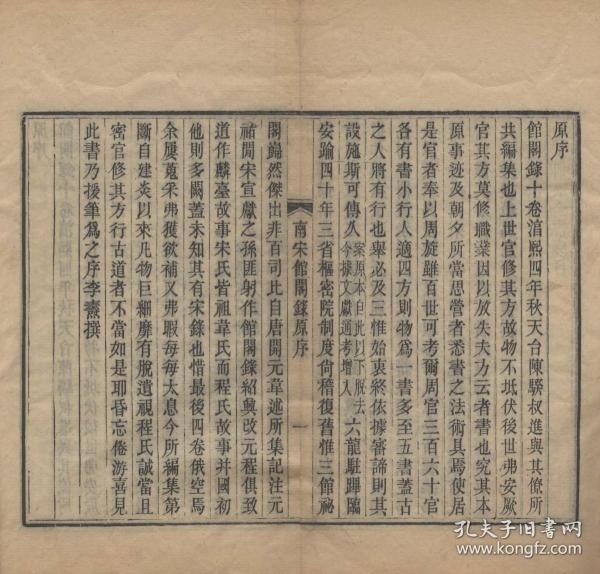 原序
館閣錄十卷淳熙四年秋天台陳騤叔進與其僚所
共編集也上世官修其方故物不坻伏後世弗安厥
官其方莫修職業因以放失夫方云者書也究其本
原事迹及朝夕所當思營者悉書之法術具焉使居
是官者奉以周旋雖百世可考爾周官三百六十官
各有書小行人適四方則物爲一書多至五書蓋古
之人將有行也舉必及三惟始衷終依據審諦則其
設施斯可傳久案原本自此以下脫去今據文獻通考增入六龍駐蹕臨
安踰四十年三省樞密院制度尙稽復舊惟三館祕
南宋館閣錄原序
一
閣巋然傑出非百司比自唐開元韋述所集記注元
祐閒宋宣獻之孫匪躬作館閣錄紹興改元程俱致
道作麟臺故事宋氏皆祖韋氏而程氏故事并國初
他則多闕蓋未知其有宋錄也惜最後四卷俄空焉
余屢蒐采弗獲欲補又弗暇每每大息今所編集第
斷自建炎以來凡物巨細靡有脫遺視程氏誠當且
密官修其方行古道者不當如是耶昏忘倦游喜見
此書乃援筆爲之序李燾撰
孔夫子旧书网
www.kongfz.com